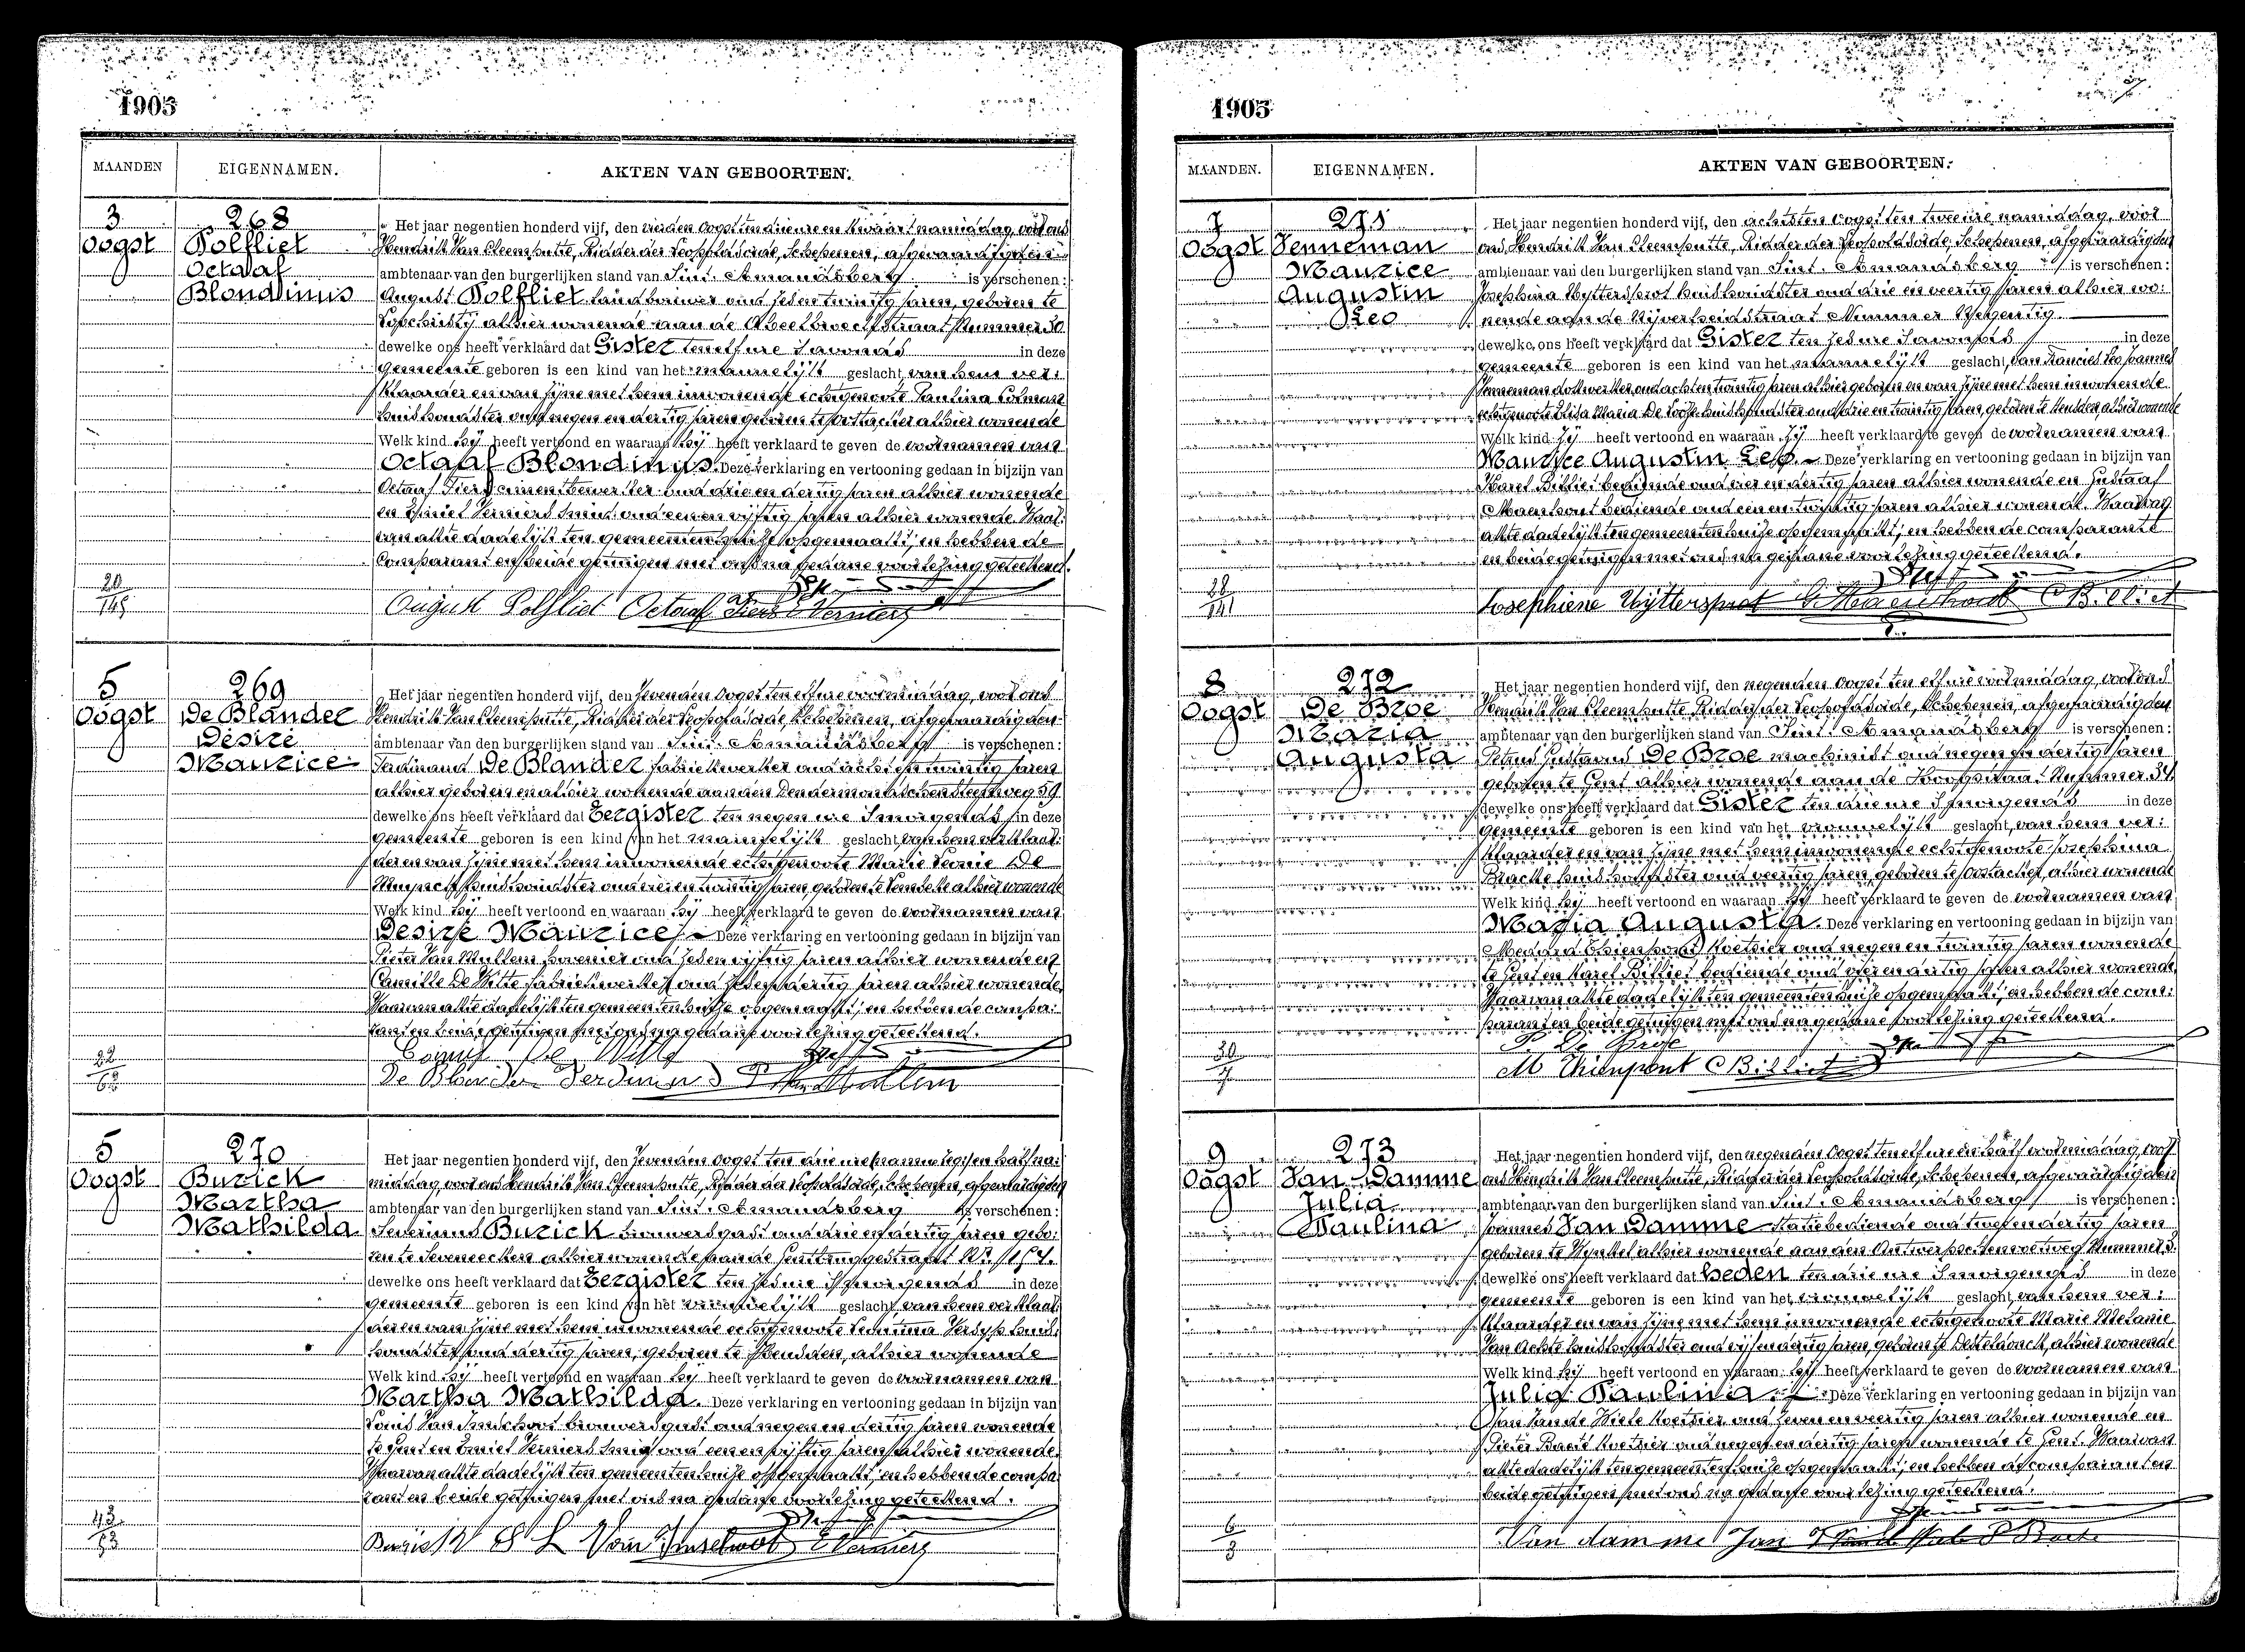 1905
MAANDEN
EIGENNAMEN.
AKTEN VAN GEBOORTEN.
3
Oogst
268
Polfliet
Octaaf
Blondinus
Het jaar negentien honderd vijf, den vierden Oogst ten drie ure en kwaart namiddag, voor ons
Hendrik Van Cleemputte, Ridder der Leopoldsorde, Schepenen, afgevaardigden
ambtenaar van den burgerlijken stand van Sint-Amandsberg is verschenen:
August Polfliet landbouwer oud zes en twintig jaren, geboren te
Loochristij alhier wonende aan de straat Nummer 30
dewelke ons heeft verklaard dat Gister ten elf ure 's avonds in deze
gemeente geboren is een kind van het mannelijk geslacht, van hem ver:
klaarder en van zijne met hem inwonende echtgenoote Paulina
huishoudster oud negen en dertig jaren geboren te Oostacker alhier wonende
Welk kind hij heeft vertoond en waaraan hij heeft verklaard te geven de voornamen van
Octaaf Blondinus. Deze verklaring en vertooning gedaan in bijzijn van
Octaaf Fiers cimentbewerker oud drie en dertig jaren alhier wonende
en Emiel Verniers smid oud een en vijftig jaren alhier wonende. Waar:
van akte dadelijk ten gemeentenhuize opgemaakt; en hebben de
Comparant en beide getuigen met ons na gedane voorlezing geteekend.
20
145
August Polfliet Octaaf Fiers E Verniers
5
Oogst
269
De Blander
Désiré
Maurice
Het jaar negentien honderd vijf, den zevenden Oogst ten elf ure voormiddag, voor ons
Hendrik Van Cleemputte, Ridder der Leopoldsorde, Schepenen, afgevaardigden
ambtenaar van den burgerlijken stand van Sint-Amandsberg is verschenen:
Ferdinand De Blander fabriekwerker oud acht en twintig jaren
alhier geboren en alhier wonende aan den Dendermondschen steenweg 59
dewelke ons heeft verklaard dat Eergister ten negen ure 's morgends in deze
gemeente geboren is een kind van het mannelijk geslacht, van hem verklaar:
der en van zijne met hem inwonende echtgenoote Marie Leonie De
Muynck huishoudster oud vier en twintig jaren geboren te alhier wonende
Welk kind hij heeft vertoond en waaraan hij heeft verklaard te geven de voornamen van
Desiré Maurice Deze verklaring en vertooning gedaan in bijzijn van
Pieter Van Mullem hovenier oud zes en vijftig jaren alhier wonende en
Camille De Witte fabriekwerker oud zes en dertig jaren alhier wonende,
Waarvan akte dadelijk ten gemeentenhuize opgemaakt; en hebben de compa:
rant en beide getuigen met ons na gedane voorlezing geteekend.
22
62
Camiel De Witte
De Blander Ferdinand P Van Mullem
5
Oogst
270
Burick
Martha
Mathilda
Het jaar negentien honderd vijf, den zevenden Oogst ten drie ure en half na:
middag, voor ons Hendrik Van Cleemputte, Ridder der Leopoldsorde, Schepenen, afgevaardigden
ambtenaar van den burgerlijken stand van Sint-Amandsberg is verschenen:
Severinus Burick brouwersgast oud drie en dertig jaren gebo:
ren te Seveneecken alhier wonende aan de Gentbruggestraat Nr. 154.
dewelke ons heeft verklaard dat Eergister ten zes ure 's morgends in deze
gemeente geboren is een kind van het vrouwelijk geslacht, van hem verklaar:
der en van zijne met hem inwonende echtgenoote Verdyp huis:
houdster oud dertig jaren, geboren te Heusden, alhier wonende
Welk kind hij heeft vertoond en waaraan hij heeft verklaard te geven de voornamen van
Martha Mathilda. Deze verklaring en vertooning gedaan in bijzijn van
Louis Van Imschoot brouwersgast oud negen en dertig jaren wonende
te Gent en Emiel Verniers smid oud een en vijftig jaren alhier wonende.
Waarvan akte dadelijk ten gemeentenhuize opgemaakt; en hebben de compa:
rant en beide getuigen met ons na gedane voorlezing geteekend.
43
53
Burick S L Van Imschoot E Verniers
1905
MAANDEN.
EIGENNAMEN.
AKTEN VAN GEBOORTEN.
7
Oogst
271
Venneman
Maurice
Augustin
Leo
Het jaar negentien honderd vijf, den achtsten Oogst ten twee ure namiddag, voor
ons Hendrik Van Cleemputte, Ridder der Leopoldsorde, Schepenen, afgevaardigden
ambtenaar van den burgerlijken stand van Sint-Amandsberg is verschenen:
Josephina Uyttersprot huishoudster oud drie en veertig jaren alhier wo:
nende aan de Nijverheidstraat Nummer Negentig
dewelke ons heeft verklaard dat Gister ten zes ure 's avonds in deze
gemeente geboren is een kind van het mannelijk geslacht, van Francies Leo Joannes
Venneman dokwerker, oud acht en twintig jaren alhier geboren en van zijne met hem inwonende
echtgenoote Elisa Maria De huishoudster oud drie en twintig jaren, geboren te Heusden, alhier wonende
Welk kind zij heeft vertoond en waaraan zij heeft verklaard te geven de voornamen van
Maurice Augustin Leo. Deze verklaring en vertooning gedaan in bijzijn van
Karel Billiet bediende oud vier en dertig jaren alhier wonende en Gustaaf
Maenhout bediende oud een en twintig jaren alhier wonende. Waarvan
akte dadelijk ten gemeentenhuize opgemaakt; en hebben de comparante
en beide getuigen met ons na gedane voorlezing geteekend.
28
141
Josephiene Uyttersprot G Maenhout C Billiet
8
Oogst
272
De Broe
Maria
Augusta
Het jaar negentien honderd vijf, den negenden Oogst ten elf ure voormiddag, voor ons
Hendrik Van Cleemputte, Ridder der Leopoldsorde, Schepenen, afgevaardigden
ambtenaar van den burgerlijken stand van Sint-Amandsberg is verschenen:
Petrus Gustavus De Broe machinist oud negen en dertig jaren
geboren te Gent alhier wonende aan de Hoogstraat Nummer 34,
dewelke ons heeft verklaard dat Gister ten drie ure 's morgends in deze
gemeente geboren is een kind van het vrouwelijk geslacht, van hem ver:
klaarder en van zijne met hem inwonende echtgenoote Josephina
Bracke huishoudster oud veertig jaren, geboren te Oostacker, alhier wonende
Welk kind hij heeft vertoond en waaraan hij heeft verklaard te geven de voornamen van
Maria Augusta. Deze verklaring en vertooning gedaan in bijzijn van
Medard Thienpont Koetsier oud negen en twintig jaren wonende
te Gent en Karel Billiet bediende oud vier en dertig jaren alhier wonende,
Waarvan akte dadelijk ten gemeentenhuize opgemaakt; en hebben de com:
parant en beide getuigen met ons na gedane voorlezing geteekend.
30
7
P De Broe
M Thienpont C Billiet
9
Oogst
273
Van Damme
Julia
Paulina
Het jaar negentien honderd vijf, den negenden Oogst ten elf ure en half voormiddag, voor
ons Hendrik Van Cleemputte, Ridder der Leopoldsorde, Schepenen, afgevaardigden
ambtenaar van den burgerlijken stand van Sint-Amandsberg is verschenen:
Joannes Van Damme statiebediende oud twee en dertig jaren
geboren te alhier wonende aan den Antwerpschen voetweg Nummer 3.
dewelke ons heeft verklaard dat heden ten drie ure 's morgends in deze
gemeente geboren is een kind van het vrouwelijk geslacht, van hem ver:
klaarder en van zijne met hem inwonende echtgenoote Marie Melanie
Van Acker huishoudster oud vijf en dertig jaren, geboren te Desteldonck, alhier wonende
Welk kind hij heeft vertoond en waaraan hij heeft verklaard te geven de voornamen van
Julia Paulina. Deze verklaring en vertooning gedaan in bijzijn van
Jan Van de Wiele Koetsier oud zeven en veertig jaren alhier wonende en
Pieter Baeté Koetsier oud negen en dertig jaren wonende te Gent. Waarvan
akte dadelijk ten gemeentenhuize opgemaakt; en hebben de comparant en
beide getuigen met ons na gedane voorlezing geteekend.
6
3
Van damme Jan